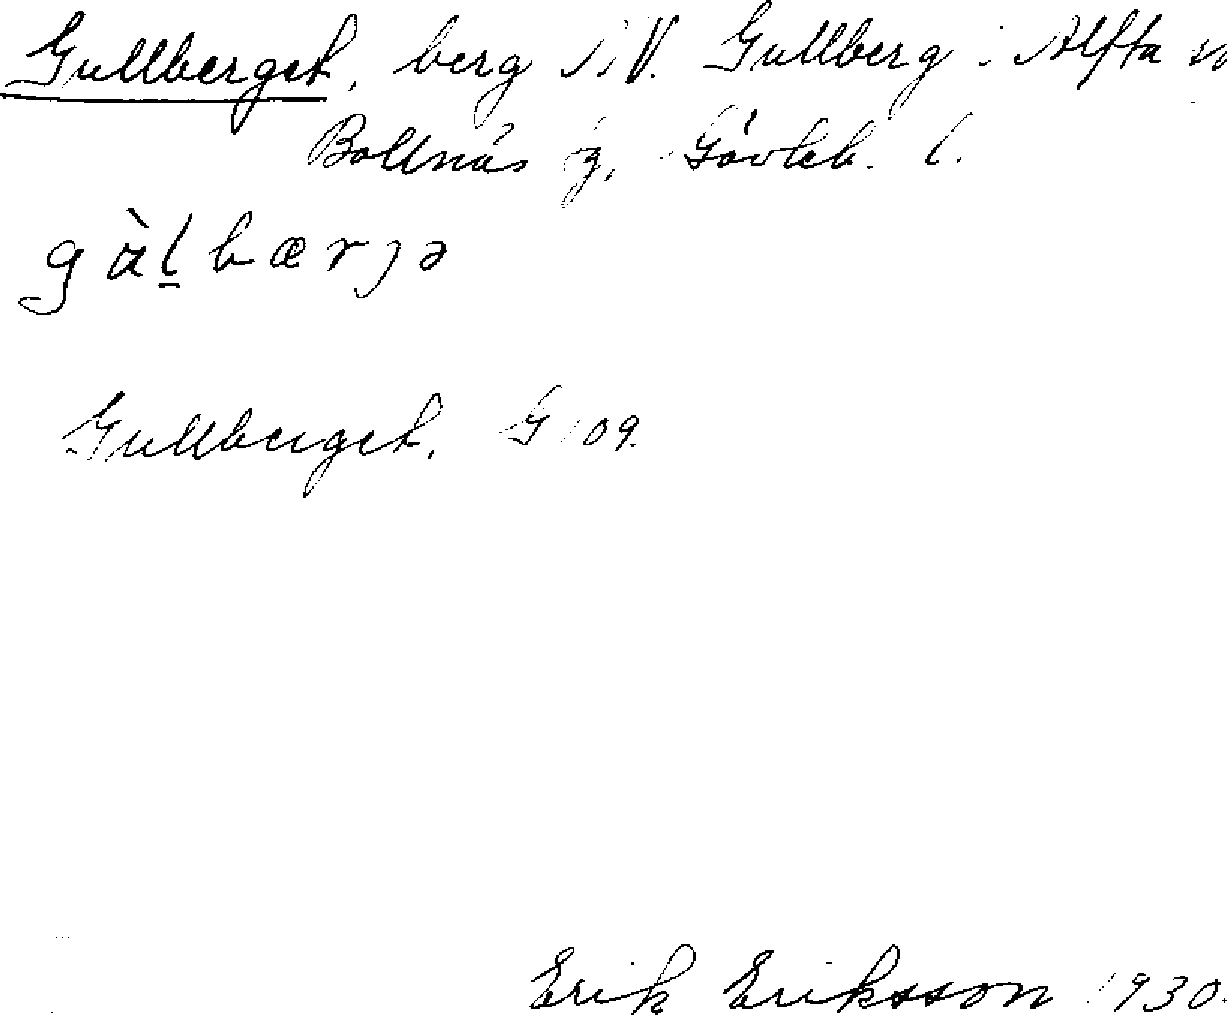 Gullberget, berg N.V. Gullberg i Alfta
Bollnäs Gävleb. l.
gàḻbærjə
Gullberget. G 109.
Erik Eriksson 1930.